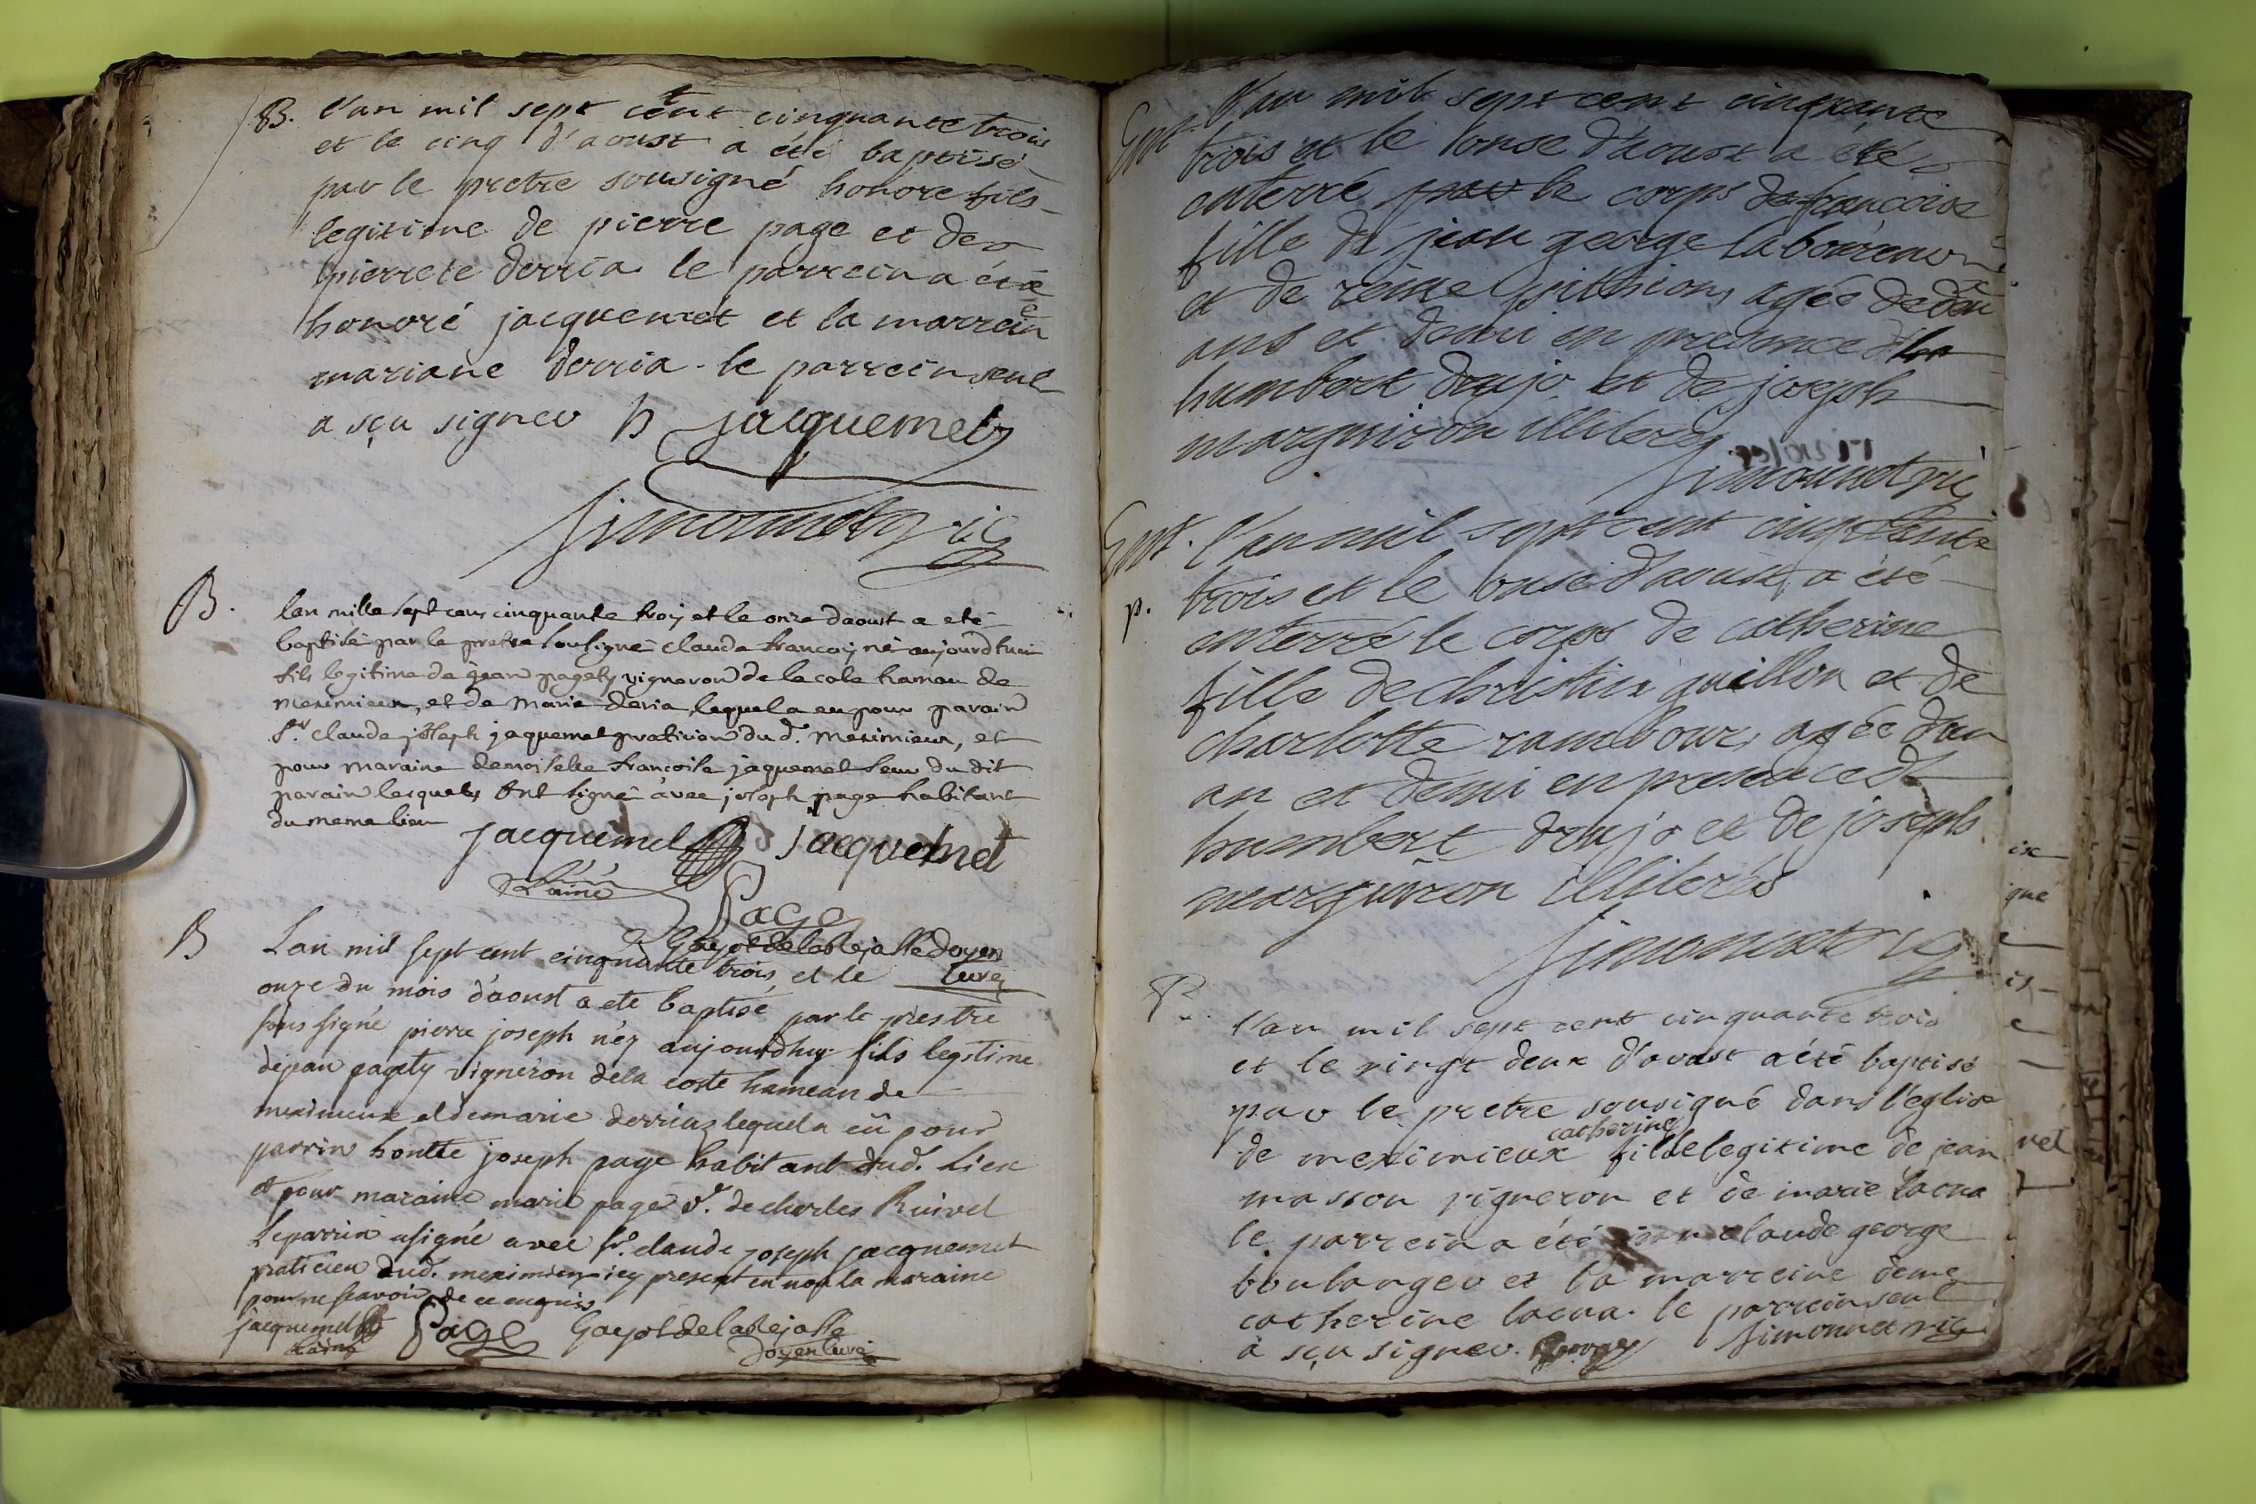 B. l'an mil sept cent cinquante trois
et le cinq d'aoust a été baptisé
par le pretre sousigné honore fils
legitime de pierre page et de
pierrete derria. le parrein a été
honoré jacquemet et la marreine
mariane derria. le parrein seul
a sçu signer h jacquemet
Simonnet vic
B. lan mille sept cens cinquante trois et le onze daoust a eté
baptisé par le pretre sousigné claude francois né aujourdhui
fils legitime de jean pagety vigneron de la cote hamau de
meximieux, et de Marie deria lequel a eu pour parain
sr claude joseph jaquemet praticien du d. meximieux, et
pour maraine demoiselle francoise jaquemet seur du dit
parain lesquels ont signé avec joseph page habitant
du meme lieu
jacquemet jacquemet
L'ainé
Page
Gayot de la Rejasse doyen
curé
B Lan mil sept cent cinquante trois et le
onze du mois d'aoust a ete baptisé par le prestre
sous signé pierre joseph néz aujourdhuy fils legitime
de jean pagety vigneron de la coste hameau de
meximeux et de marie derriaz lequel a eû pour
parrin honête joseph page habitant dud. Lieu
et pour maraine marie page f. de charles Ruivet
Le parrin a signé avec sr. claude joseph jacquemet
praticien dud. meximieu icy present et non la maraine
pour ne scavoir de ce enquis
jacquemet Page Gayot de la Rejasse
L'ainé doyen curé
Ent. l'an mil sept cent cinquante
trois et le onse d'aoust a été
enterré le corps de francoise
fille de jean george laboureur
et de reine pithion, agée de deu
ans et demi en presence
humbert drujo et de joseph
marguiron illiterés
Simonnet vic
Ent. l'an mil sept cent cinquante
trois et le onse d'aoust, a été
p. enterré le corps de catherine
fille de christin guillon et de
charlotte rambour, agée d'un
an et demi en presence de
humbert drujo et de joseph
marguiron illiterés
Simonnet vic
B. l'an mil sept cent cinquante trois
et le vingt deux d'aoust a été baptisé
par le pretre sousigné dans l'eglise
catherine
de meximieux fille legitime de jean
masson vigneron et de marie lacua
le parrein a été claude george
boulanger et la marreine deme
catherine lacua. le parrein seul
a sçu signer. George Simonnet vic